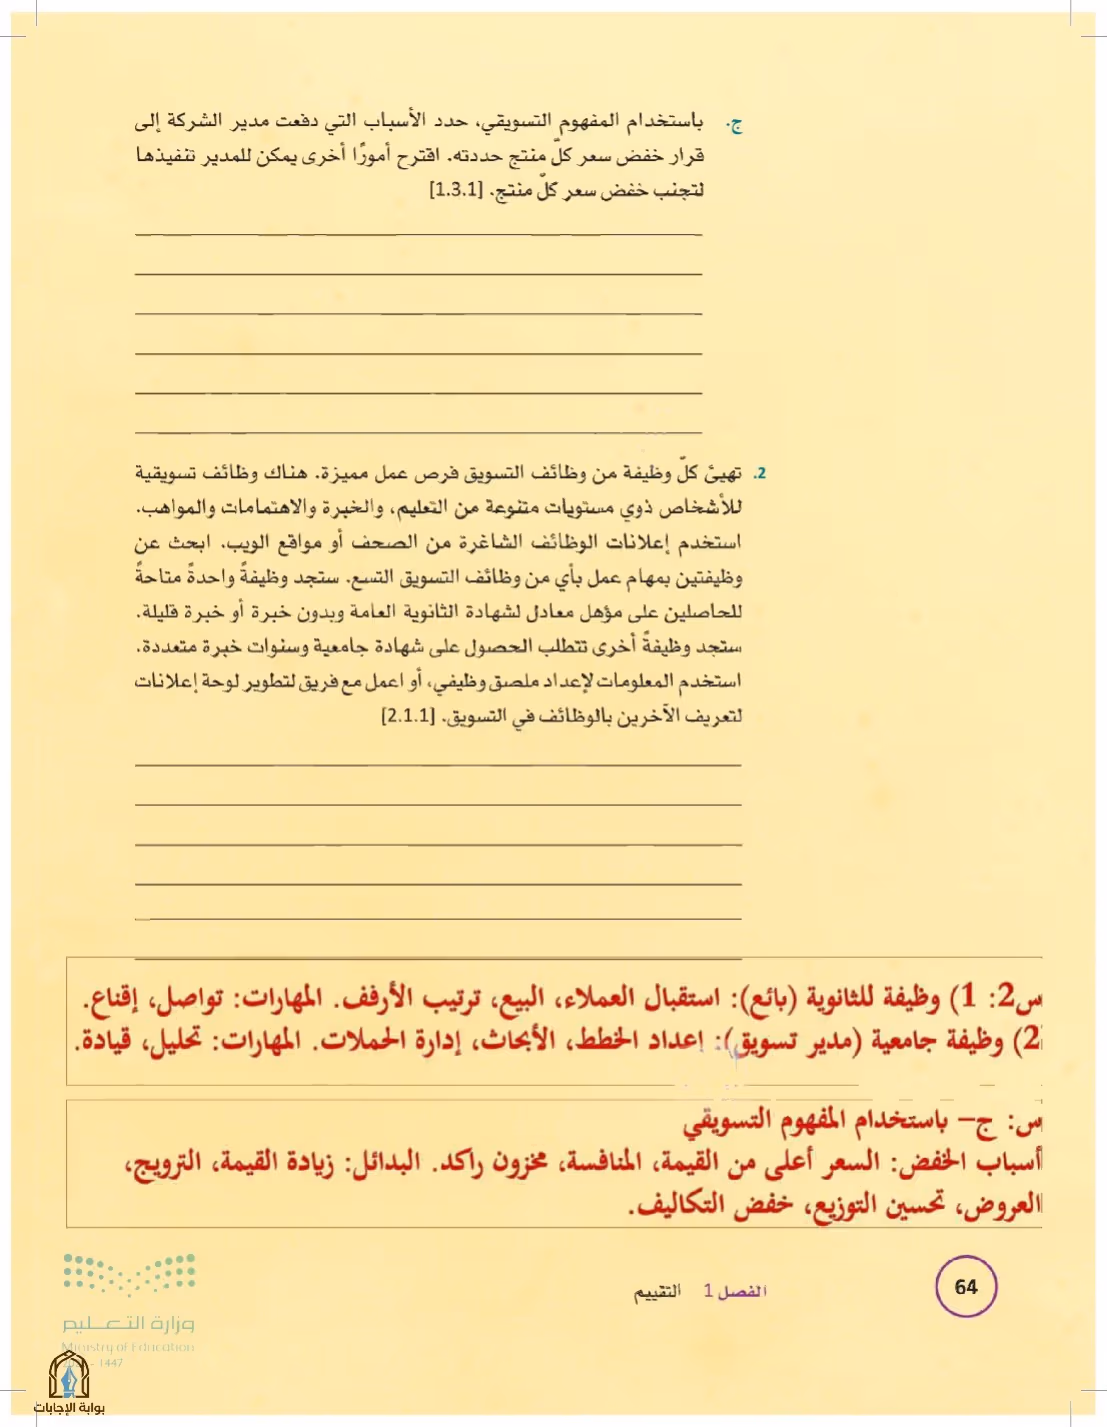 ج. باستخدام المفهوم التسويقي، حدد الأسباب التي دفعت مدير الشركة إلى
قرار خفض سعر كلّ منتج حددته. اقترح أمورًا أخرى يمكن للمدير تنفيذها
لتجنب خفض سعر كلّ منتج. [1.3.1]
2. تهيئ كلّ وظيفة من وظائف التسويق فرص عمل مميزة. هناك وظائف تسويقية
للأشخاص ذوي مستويات متنوعة من التعليم، والخبرة والاهتمامات والمواهب.
استخدم إعلانات الوظائف الشاغرة من الصحف أو مواقع الويب. ابحث عن
وظيفتين بمهام عمل بأي من وظائف التسويق التسع. ستجد وظيفةً واحدةً متاحةً
للحاصلين على مؤهل معادل لشهادة الثانوية العامة وبدون خبرة أو خبرة قليلة.
ستجد وظيفةً أخرى تتطلب الحصول على شهادة جامعية وسنوات خبرة متعددة.
استخدم المعلومات لإعداد ملصق وظيفي، أو اعمل مع فريق لتطوير لوحة إعلانات
لتعريف الآخرين بالوظائف في التسويق. [2.1.1]
س2: 1) وظيفة للثانوية (بائع): استقبال العملاء، البيع، ترتيب الأرفف. المهارات: تواصل، إقناع.
2) وظيفة جامعية (مدير تسويق): إعداد الخطط، الأبحاث، إدارة الحملات. المهارات: تحليل، قيادة.
س: ج– باستخدام المفهوم التسويقي
أسباب الخفض: السعر أعلى من القيمة، المنافسة، مخزون راكد. البدائل: زيادة القيمة، الترويج،
العروض، تحسين التوزيع، خفض التكاليف.
64
الفصل 1 التقييم
وزارة التعـــليم
Ministry of Education
- 1447
بوابة الإجابات